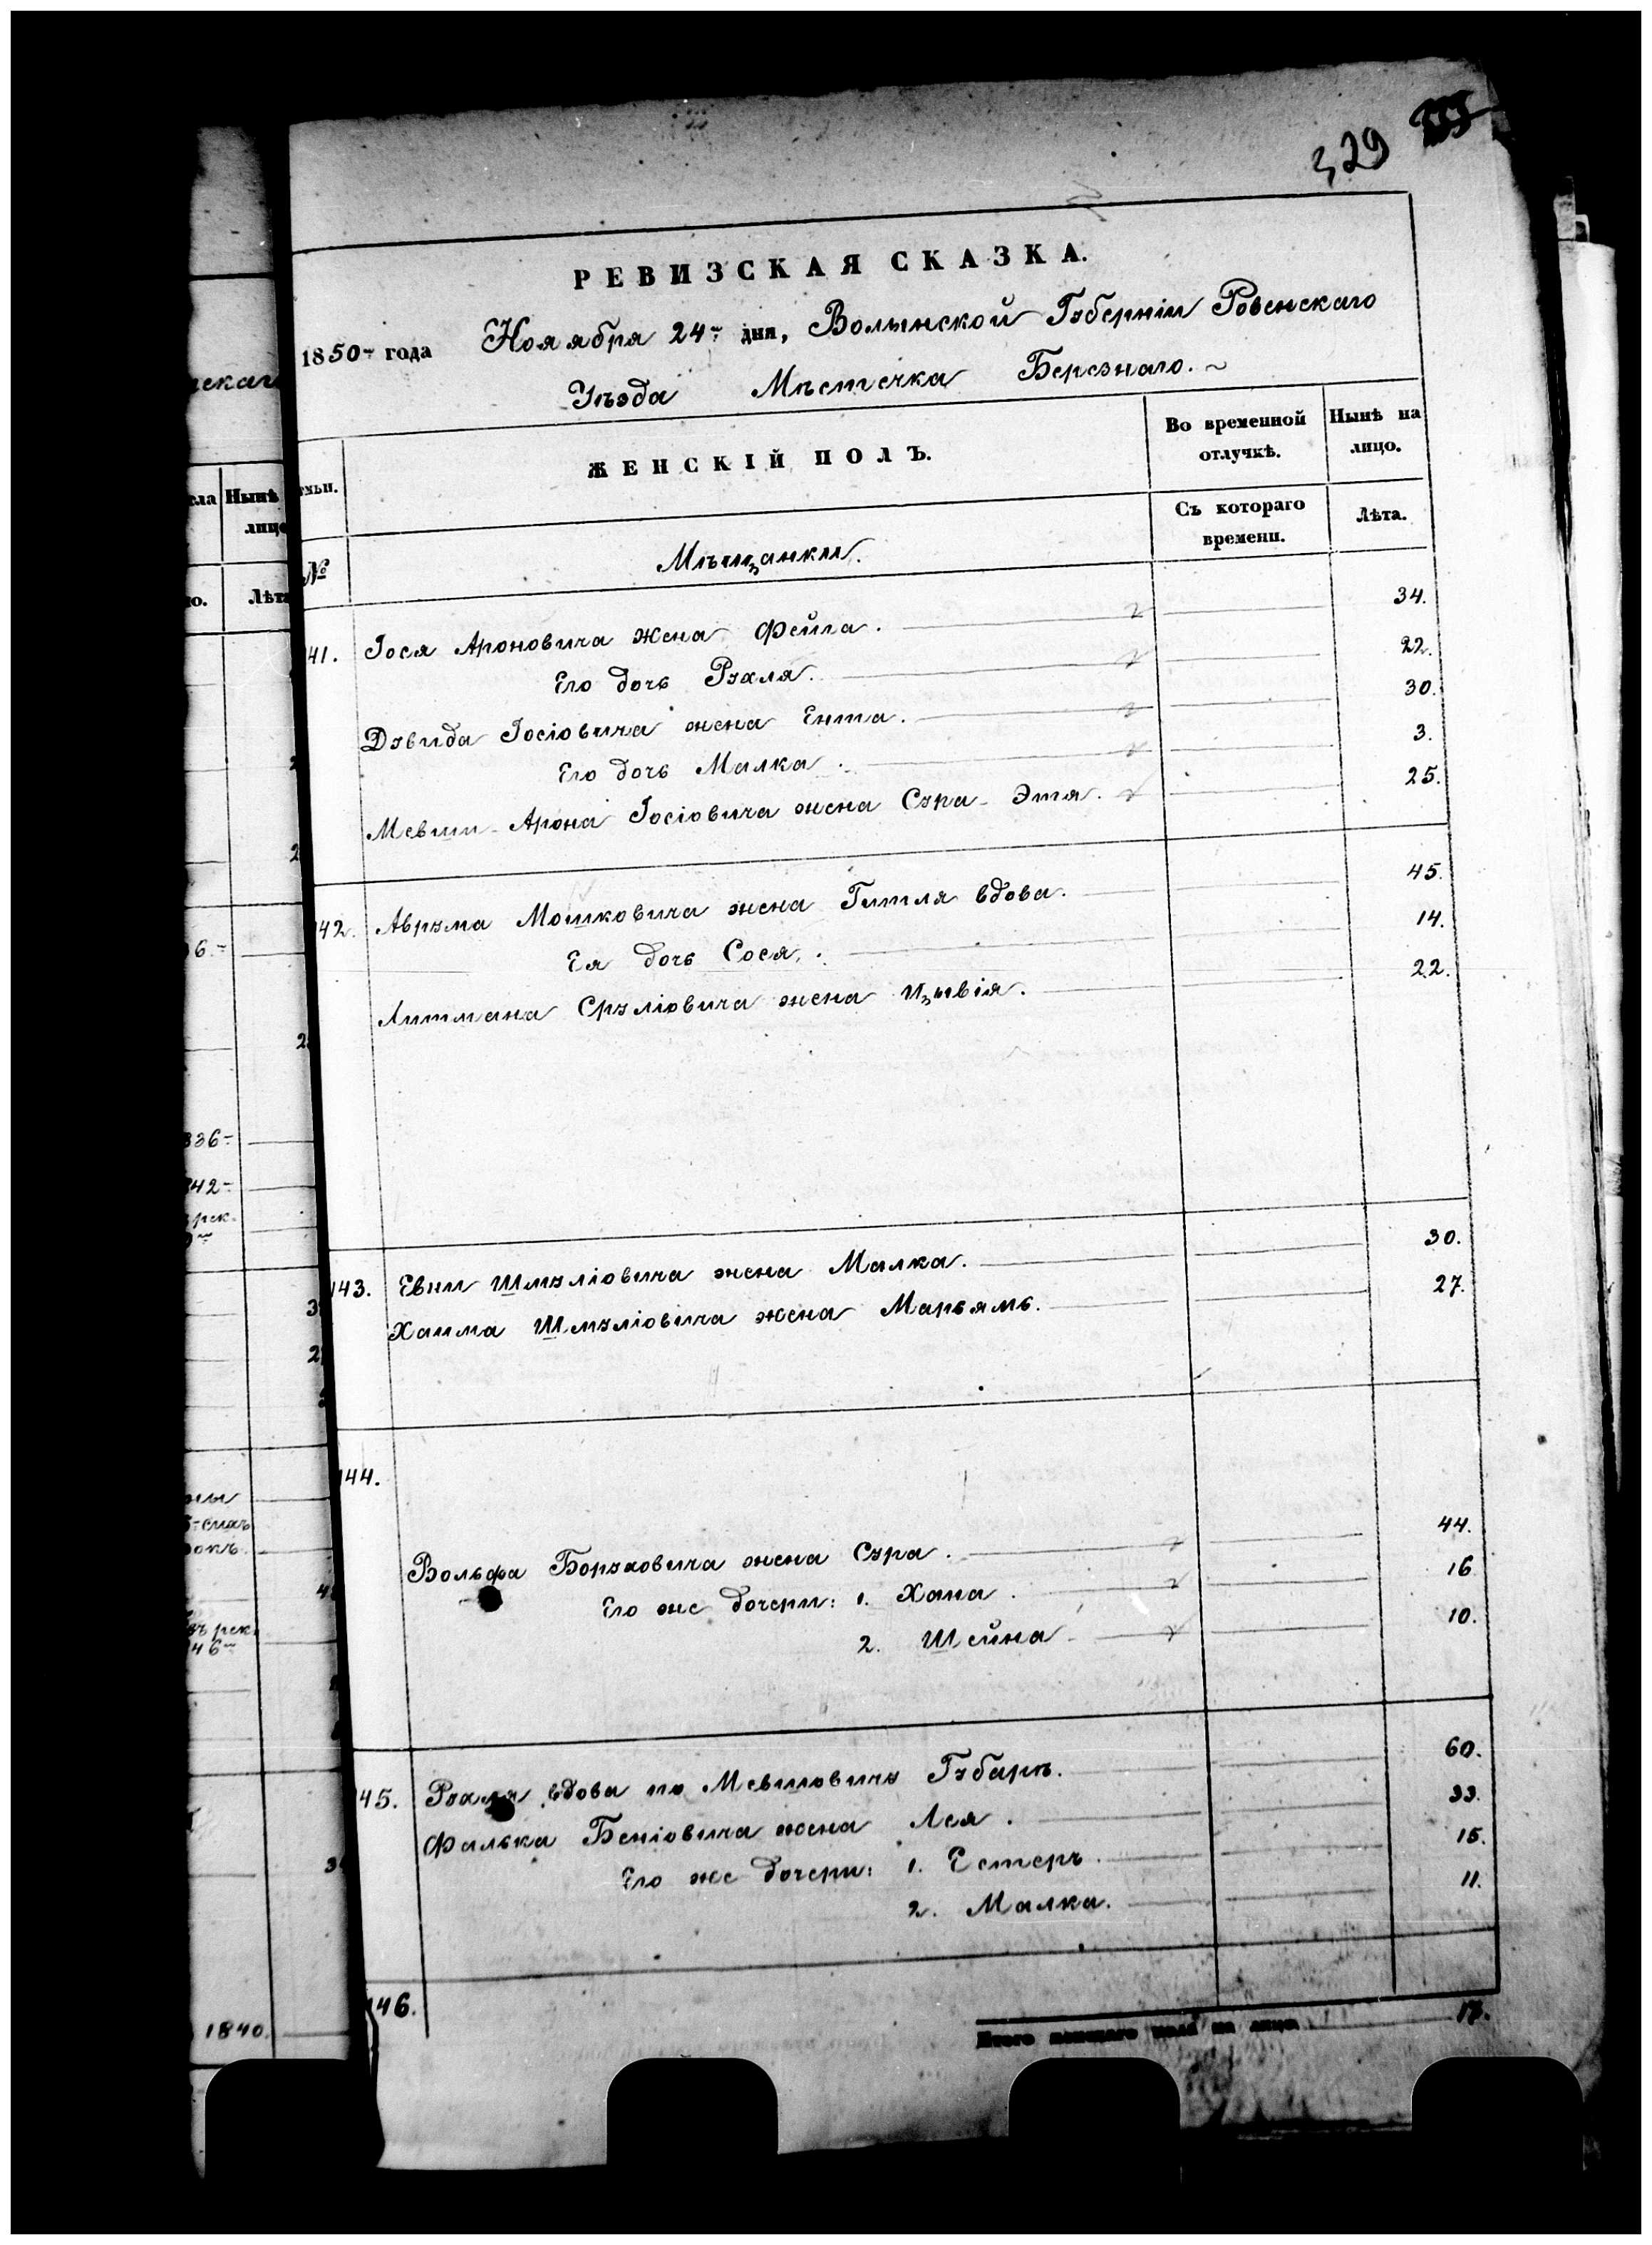 329
РЕВИЗСКАЯ СКАЗКА.
1850 года Ноября 24 дня, Волынской Губерніи Ровенскаго
Уѣзда Мѣстечка Березнаго.
ЖЕНСКІЙ ПОЛЪ.
Во временной отлучкѣ.
Нынѣ на лицо.
№
Мѣщанки.
Съ котораго времени.
Лѣта.
41. Іося Ароновича жена Фейга. 34.
Его дочь Рухля. 22.
Дувида Іосіовича жена Ента. 30.
Его дочь Малка. 3.
Мевши-Арона Іосіовича жена Сура-Этя. 25.
42. Аврума Мошковича жена Гитля вдова. 45.
Ея дочь Сося. 14.
Литмана Сруліовича жена Цывія. 22.
143. Евни Шмуліовича жена Малка. 30.
Хаима Шмуліовича жена Марьямъ. 27.
144.
Вольфа Боруховича жена Сура. 44.
Его же дочери: 1. Хана. 16
2. Шейна 10.
45. Рухля вдова по Мевшовичу Губарѣ. 60.
Фалька Беніовича жена Лея. 33.
Его же дочери: 1. Естеръ. 15.
2. Малка. 11.
146.
Итого женскаго пола на лицо 17.
скаго
Нынѣ
лицо
Лѣта
36
842
рек.
1840